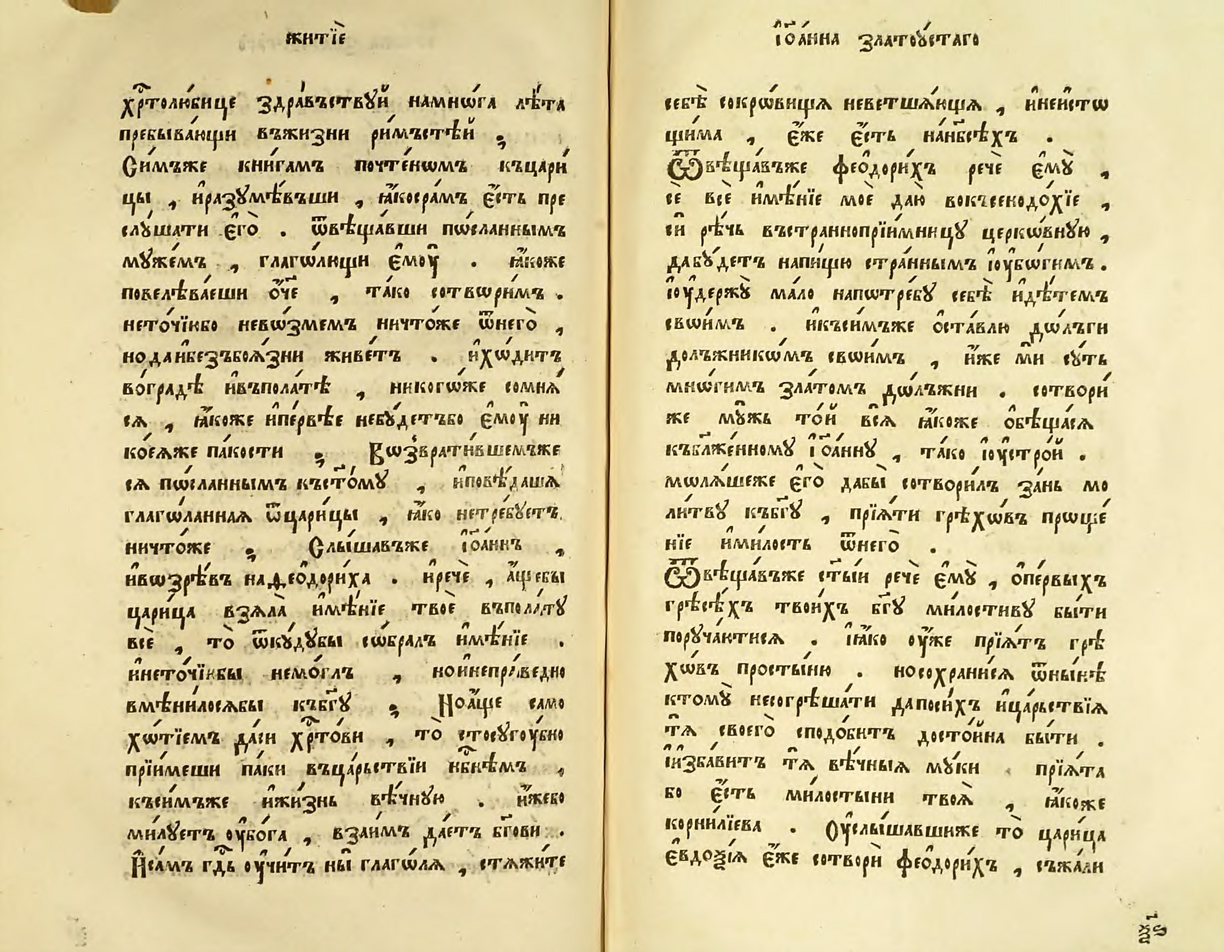 житїѐ
хрⷭ҇толю́бице здра́въствꙋй намнѡ́га лѣ́та
пребыва́ющи въжи́зни ри́мъстѣй ;
Си́мъже кни́гамъ почте́нѡмъ къцари́
цы , и҆разꙋмѣ́въши , ꙗ҆́косра́мъ є҆́сть пре
слꙋ́шати є҆го̀ . ѿвѣща́вши по́сланнымъ
мꙋже́мъ , глаго́лющи є҆моу̀ . ꙗ҆́коже
повелѣва́еши ѻ҆́ч҃е , та́ко сотвори́мъ .
нето́чїюбо нево́змемъ ничто́же ѿнего̀ ,
нода́ибезъбоꙗ́зни живе́тъ . и҆хо́дитъ
во́градѣ и҆въпола́тѣ , никого́же сомнѧ́
сѧ , ꙗ҆́коже и҆пе́рвѣе небꙋ́детъбо є҆моу̀ ни
кое́ѧже па́кости ; Воз̾врати́вшемъже
сѧ по́сланнымъ къст҃о́мꙋ , и҆повѣ́дашѧ
глаго́ланнаѧ ѿцари́цы , ꙗ҆́ко нетре́бꙋетъ
ничто́же ; Слы́шавъже і҆ѡа́ннъ ,
и҆возрѣ́въ наѳео́дориха . и҆речѐ , а҆́щебы
цари́ца взѧла̀ и҆мѣ́нїе твоѐ въпола́тꙋ
всѐ , то̀ ѿкꙋ́дꙋбы собра́лъ и҆мѣ́нїе .
и҆нето́чїюбы немо́глъ , ноинепра́ведно
вмѣни́лосѧбы къбг҃ꙋ ; Ноа҆́ще само
хотїе́мъ да́си хрⷭ҇то́ви , то̀ стосꙋгоу́бно
прїи́меши па́ки въца́рьствїи нбⷭ҇нѣмъ ,
къси́мъже и҆жи́знь вѣ́чнꙋю . и҆́жебо
ми́лꙋетъ оу҆бо́га , взаи́мъ дае́тъ бг҃ови .
И҆са́мъ гдⷭ҇ь оу҆чи́тъ ны̀ глаго́лѧ , стѧжи́те
і҆ѡа́нна златоꙋ́стаго
себѣ̀ сокро́вищѧ неветша́ющѧ , и҆неи́сто
щи́ма , є҆́же є҆́сть нан҃бсѣ́хъ .
Ѿвѣща́въже ѳео́дорихъ речѐ є҆мꙋ̀ ,
сѐ всѐ и҆мѣ́нїе моѐ даю̀ воксенодохїе ,
си́ рѣчь въстраннопрїи́мницꙋ церко́внꙋю ,
дабꙋ́детъ напи́щю стра́ннымъ і҆оубо́гимъ .
і҆оу҆держꙋ̀ ма́ло напотре́бꙋ себѣ̀ и҆дѣ́темъ
свои́мъ . и҆къси́мъже ѡ҆ста́влю до́лъги
должнико́мъ свои́мъ , и҆́же ми̑ сꙋ́ть
мно́гимъ зла́томъ до́лъжни . сотвори́
же мꙋ́жь то́й всѧ̀ ꙗ҆́коже ѡ҆бѣща́сѧ
къблаже́нномꙋ і҆ѡа́ннꙋ , та́ко і҆оу҆стро́й .
молѧ́шеже є҆го̀ дабы̀ сотвори́лъ за́нь мо
ли́твꙋ къбг҃ꙋ , прїѧ́ти грѣхо́въ проще́
нїе и҆ми́лость ѿнего̀ .
Ѿвѣща́въже ст҃ы́и речѐ є҆мꙋ̀ , ѡ҆пе́рвыхъ
грѣсѣ́хъ твои́хъ бг҃ꙋ ми́лостивꙋ бы́ти
порꙋча́ютисѧ . і҆ꙗ҆́ко оу҆́же прїѧ́тъ грѣ
хо́въ просты́ню . носохрани́сѧ ѿны́нѣ
ктомꙋ̀ несогрѣша́ти дапоси́хъ и҆ца́рьствїѧ
тѧ̀ своего̀ сподо́битъ досто́йна бы́ти .
і҆и҆зба́витъ тѧ̀ вѣ́чныѧ мꙋ́ки . прїѧ́та
бо є҆́сть ми́лостыни твоѧ̀ , ꙗ҆́коже
корни́лїева . Оу҆слы́шавшиже то̀ цари́ца
є҆ѵдо́ѯїѧ є҆́же сотворѝ ѳео́дорихъ , съжа́ли